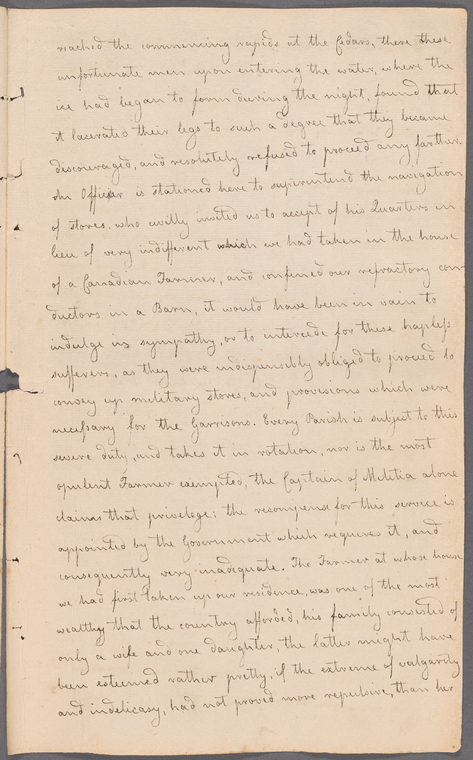 reached the commencing rapids at the Cedars, there these
unfortunate men upon entering the water, where the
ice had began to form during the night, found that
it lacerated their legs to such a degree that they became
discouraged, and resolutely refused to proceed any farther.
An Officer is stationed here to superintend the navigation
of stores, who civilly invited us to accept of his Quarters in
lieu of very indifferent which we had taken in the house
of a Canadian Farmer, and confined our refractory con-
ductors in a Barn, it would have been in vain to
indulge in sympathy, or to intercede for these hapless
sufferers, as they were indispensibly obliged to proceed to
convey up military stores, and provisions which were
necessary for the Garrisons. Every Parish is subject to this
severe duty, and takes it in rotation, nor is the most
opulent Farmer exempted, the Captain of Militia alone
claims that privelege: the recompense for this service is
appointed by the Government which requires it, and
consequently very inadequate. The Farmer at whose house
we had first taken up our residence, was one of the most
wealthy that the country afforded, his family consisted of
only a wife and one daughter, the latter might have
been esteemed rather pretty, if the extreme of vulgarity
and indelicasy, had not proved more repulsive, than her